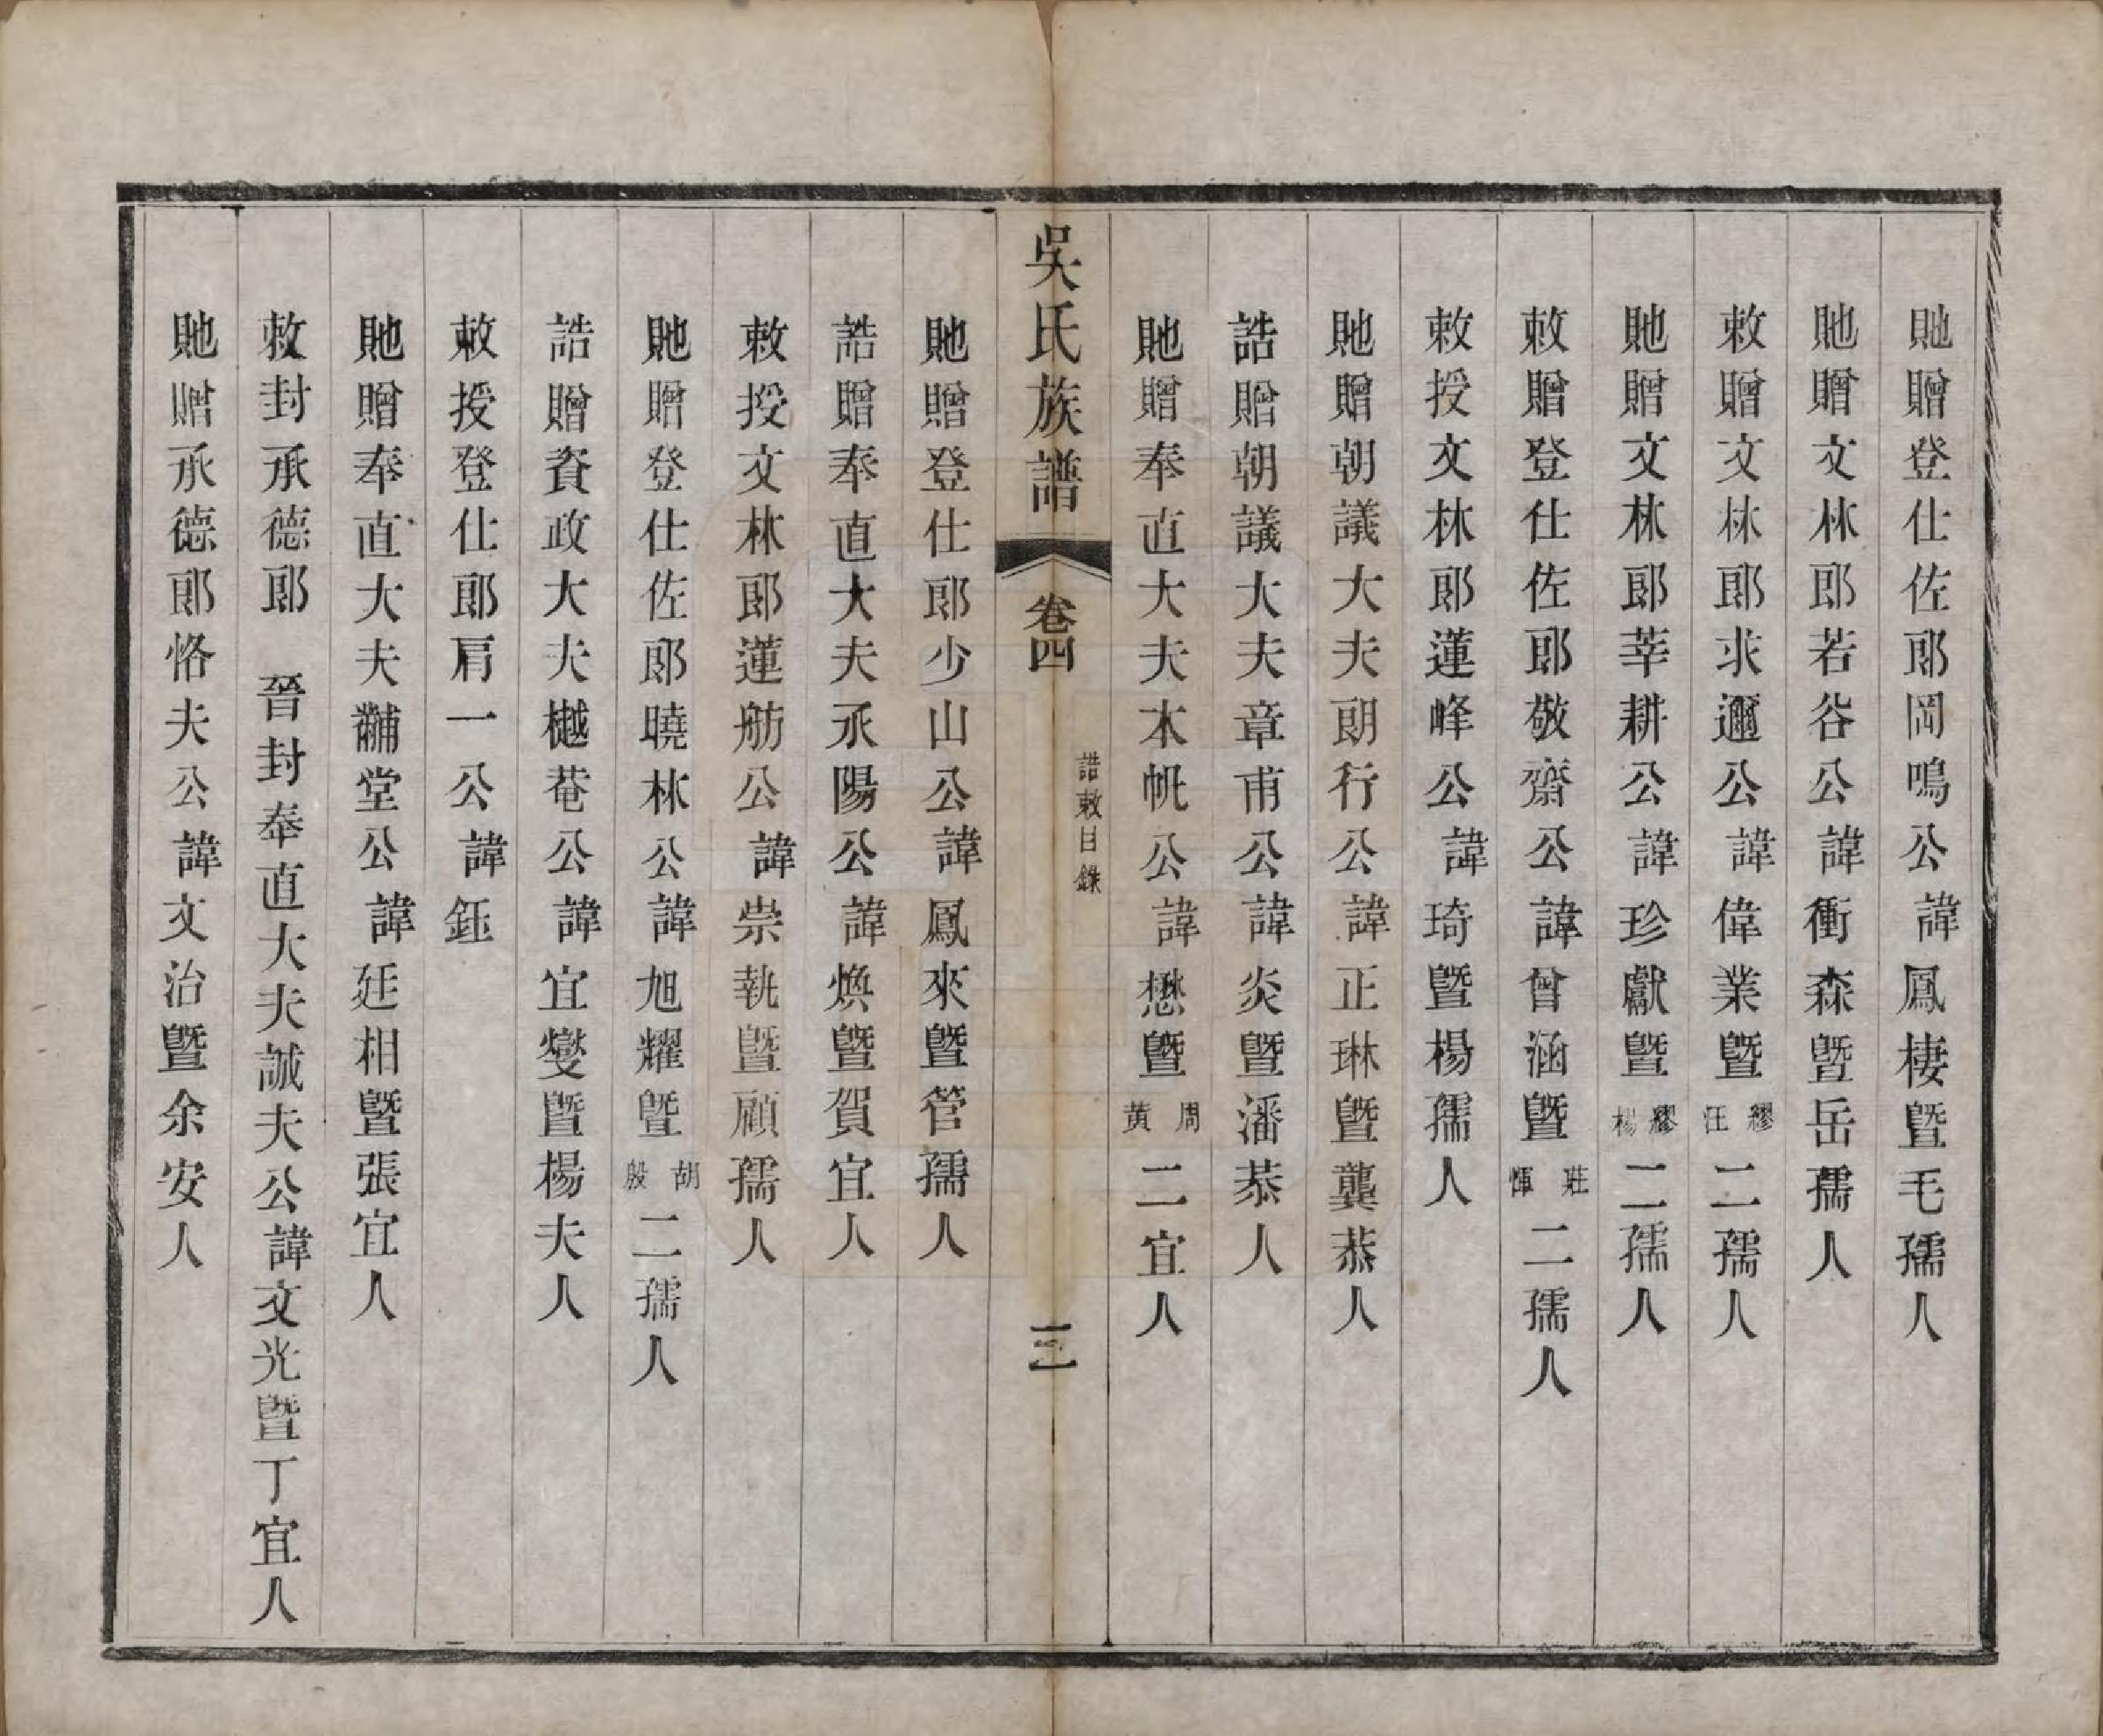 貤贈登仕佐郎岡鳴公諱鳳棲曁毛孺人
貤贈文林郎若谷公諱衝森曁岳孺人
敕贈文林郎求邇公諱偉業曁繆汪二孺人
貤贈文林郎莘耕公諱珍獻曁繆楊二孺人
敕贈登仕佐郎敬齋公諱曾涵曁莊惲二孺人
敕授文林郎蓮峰公諱琦曁楊孺人
貤贈朝議大夫朗行公諱正琳曁龔恭人
誥贈朝議大夫章甫公諱炎曁潘恭人
貤贈奉直大夫木帆公諱懋曁周黄二宜人
吳氏族譜 卷四 誥敕目錄 三
貤贈登仕郎少山公諱鳳來曁管孺人
誥贈奉直大夫丞陽公諱煥曁賀宜人
敕授文林郎蓮舫公諱崇執曁顧孺人
貤贈登仕佐郎曉林公諱旭耀曁胡殷二孺人
誥贈資政大夫樾菴公諱宜燮曁楊夫人
敕授登仕郎肩一公諱鈺
貤贈奉直大夫黼堂公諱廷相曁張宜人
敕封承德郎 晉封奉直大夫誠夫公諱文光曁丁宜人
貤贈承德郎恪夫公諱文治曁余安人